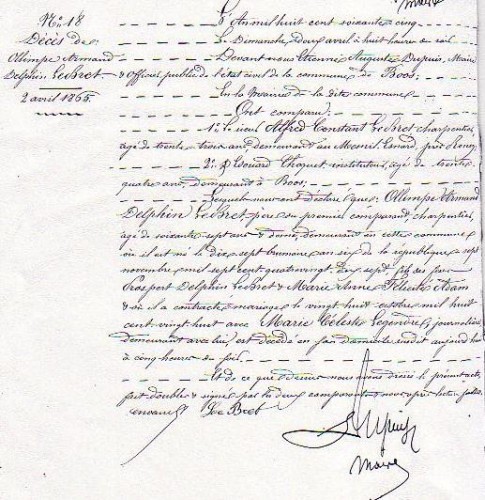 No. 18
Décès de
Ollimpe Armand
Delphin LeBret
2 avril 1865
L'An mil huit cent soixante cinq
Le Dimanche Deux avril à huit heures du soir
Devant nous Etienne Auguste Dupuis, Maire
& Officier public de l'état civil de la commune de Boos
En la Mairie de la dite commune
Ont comparu:
1° Le sieur Alfred Constant LeBret charpentier,
agé de trente trois ans, demeurant au Mesnil Esnard, près Rouen,
2° Edouard Choquet, instituteur, agé de trente
quatre ans, demeurant à Boos;
Lesquels nous ont déclaré que: Ollimpe Armand
Delphin LeBret, père du premier comparant, charpentier,
agé de soixante sept ans & demi, demeurant en cette commune
où il est né le dix sept brumaire an six de la république sept
novembre mil sept cent quatre vingt dix sept, fils des feus
Prosper Delphin LeBret & Marie Anne Félicité
& où il a contracté mariage le vingt huit octobre mil huit
cent vingt huit avec Marie Céleste Legendre, journalière
demeurant avec lui, est décédé en son domicile susdit aujourd'hui
à cinq heures du soir.
Et de ce que dessus nous avons dressé le présent acte,
fait double & signé par les deux comparants & nous après lecture faite.
Le Bret
Dupuis
Maire